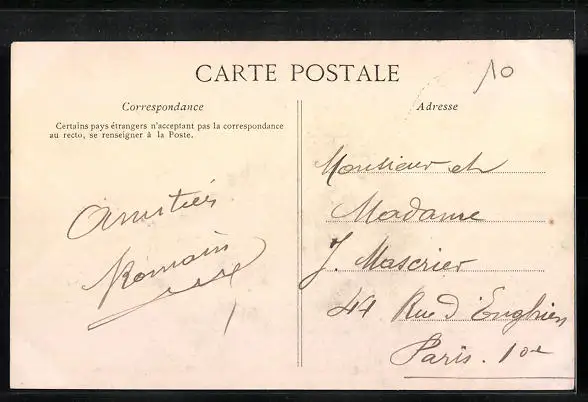 CARTE POSTALE
10
Correspondance
Certains pays étrangers n'acceptant pas la correspondance
au recto, se renseigner à la Poste.
Amitiés
Romain
Adresse
Monsieur et
Madame
J. Mascrier
44 Rue d'Enghien
Paris. 10e